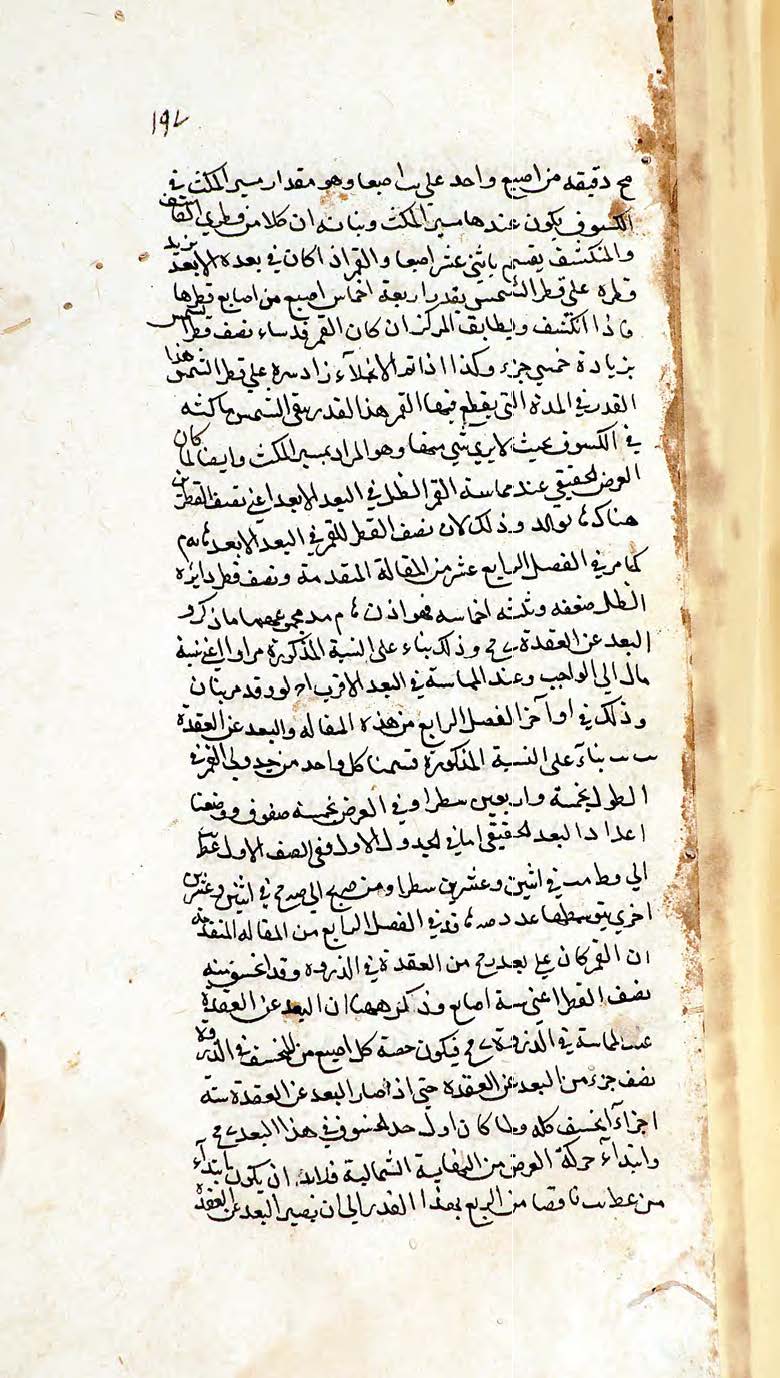 ١٩٧
مح دقيقه من اصبع واحد على يب اصبعا وهو مقدار مسير المكث في
الكسوف يكون عندها مسير المكث وبيانه ان كلا من قطري الكاسف
والمنكسف يقسم باثني عشر اصبعا والقمر اذا كان في بعده الابعد يزيد
قطره على قطر الشمس بقدر اربعة اخماس اصبع من اصابع قطرها
فاذا انكسف ويطابق المركزان كان القمر قد ساء نصف قطر الشمس
بزيادة خمسي جزء وكذا اذا تم الانجلاء زاد سره على قطر الشمس هذا
القدر في المدة التي يقطع فيها القمر هذا القدر يبقى الشمس ماكثه
في الكسوف بحيث لا يرى شي منها وهو المراد بمسير المكث وايضا لما كان
العرض الحقيقي عند مماسة القمر الظل في البعد الابعد اعني نصف القطرين
هناك وذلك لان نصف القطر للقمر في البعد الابعد
كما مر في الفصل الرابع عشر من المقالة المتقدمة ونصف قطر دايرة
الظل ضعفه وثلثه اخماسه فهو اذن مجموعهما ما ذكر و
البعد عن العقدة وذلك بناء على النسبة المذكورة مرارا اعني نسبة
مال الى الواجب وعند المماسة في البعد الاقرب وقد مر بيان
وذلك في اواخر الفصل الرابع من هذه المقاله والبعد عن العقدة
بناء على النسبة المذكورة قسمنا كل واحد من جدولي القمر في
الطول بخمسة واربعين سطرا وفي العرض بخمسة صفوف ووضعنا
اعداد البعد الحقيقي اما في الجدول الاول ففي الصف الاول
الى في اثنين وعشرين سطرا ومن الى في اثنين وعشرين
اخرى يتوسطها عدد في الفصل الرابع من المقاله المتقدمة
ان القمر كان على بعد من العقدة في الذروه وقد انخسف منه
نصف القطر اعني ستة اصابع وذكر ههنا ان البعد عن العقدة
عند المماسة في الذروة فيكون حصة كل اصبع من المنخسف في الذروة
نصف جزء من البعد عن العقدة حتى اذا صار البعد عن العقدة ستة
اجزاء انخسف كله ولما كان اول حد الخسوف في هذا البعد
وابتداء حركة العرض من النهاية الشمالية فلابد ان يكون ابتداء
من ناقصا من الربع بهذا القدر الى ان يصير البعد عن العقدة